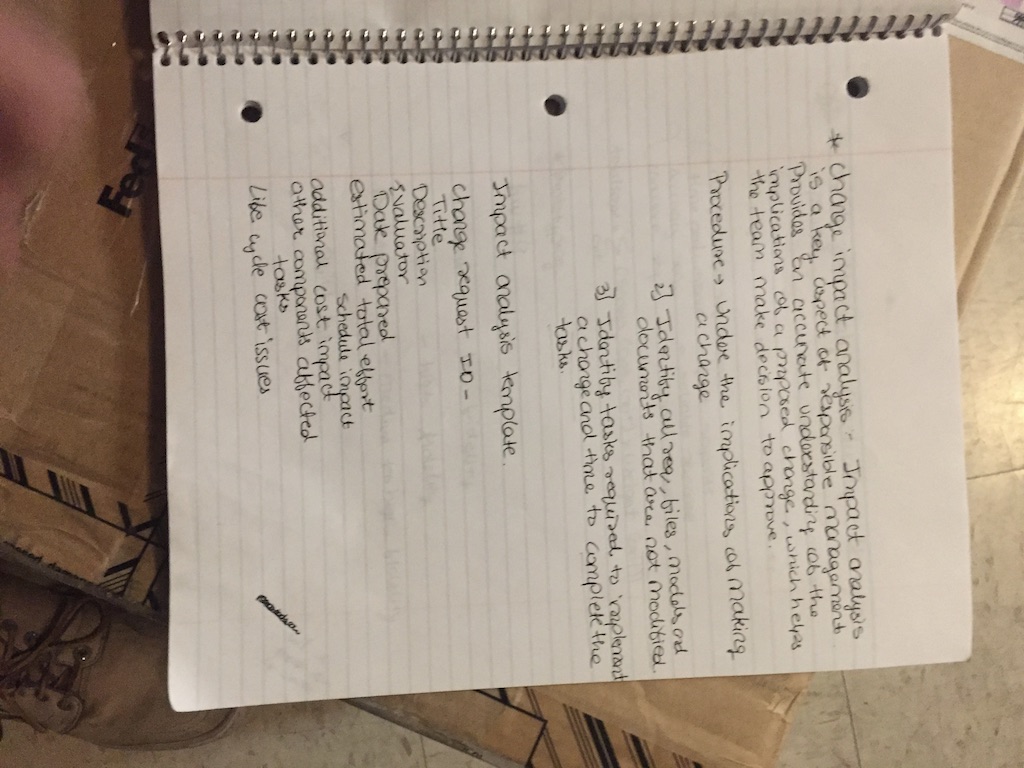 * Change impact analysis - Impact analysis
is a key aspect of responsible management
Provides an accurate understanding of the
implications of a proposed change, which helps
the team make decision to approve.
Procedure → Undse the implications of making
a change
2] Identify all req, files, models and
documents that are not modified
3] Identify tasks required to implement
a change and time to complete the
tasks.
Impact analysis template.
Change request ID -
Title
Description
Evaluator
Date prepared
estimated total effort
schedule impact
additional cost impact
other components affected
tasks
Life cycle cost issues
FedEx